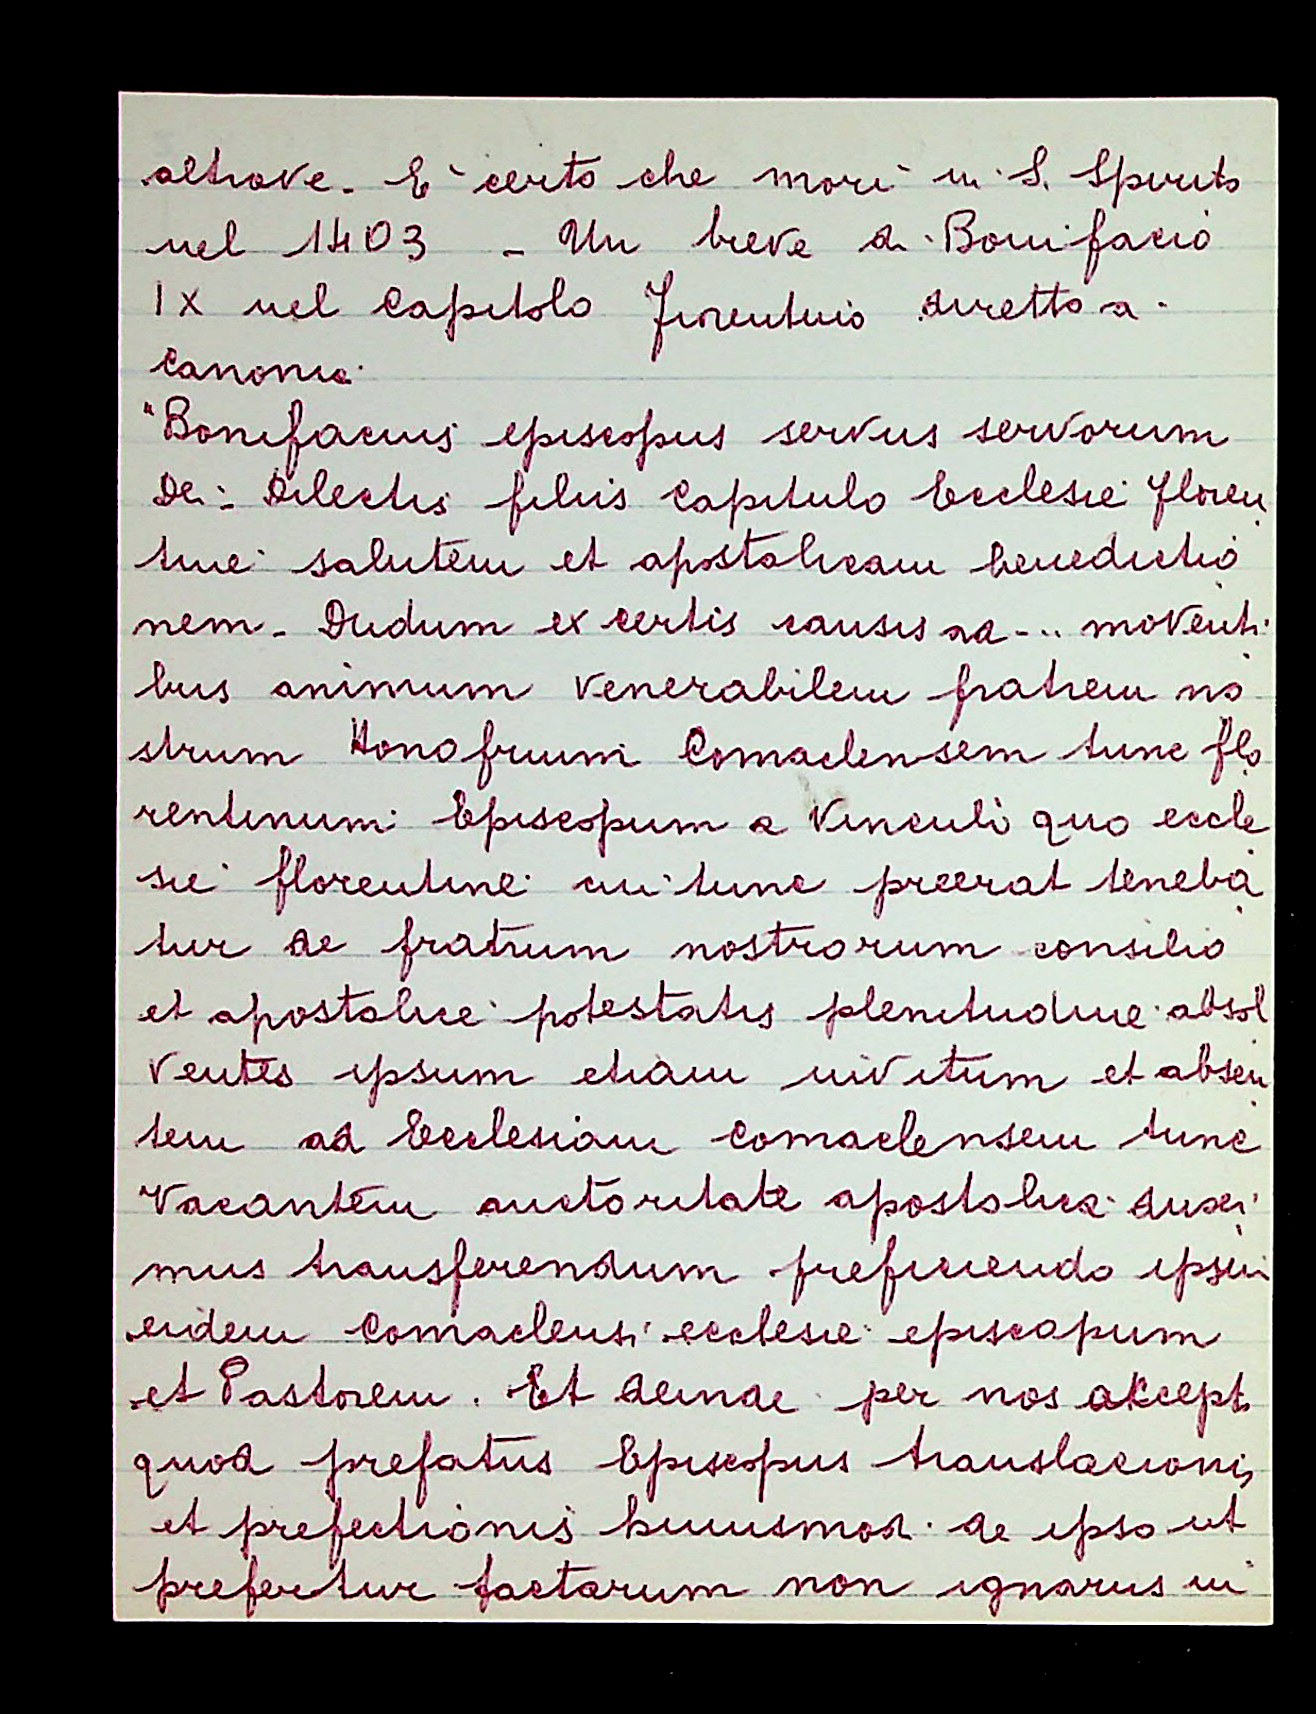 altrove. È certo che morì in S. Spirito
nel 1403 - Un breve di Bonifacio
IX nel Capitolo Fiorentino diretto ai
canonici
"Bonifacius episcopus servus servorum
Dei: Dilectis filiis Capitulo Ecclesie Floren
tine salutem et apostolicam benedictio
nem. Dudum ex certis causis ad... moventi
bus animum venerabilem fratrem no
strum Honofrium Comaclensem tunc flo
rentinum Episcopum a vinculi quo eccle
sie florentine cui tunc preerat teneba
tur de fratrum nostrorum consilio
et apostolice potestatis plenitudine absol
ventes ipsum etiam invitum et absen
tem ad Ecclesiam comaclensem tunc
vacantem auctoritate apostolica duxi
mus transferendum preficiendo ipsum
eidem Comaclensi ecclesie episcopum
et Pastorem. Et deinde per nos accept
quod prefatus Episcopus translacionis
et prefectionis huiusmodi de ipso ut
prefertur factarum non ignarus in